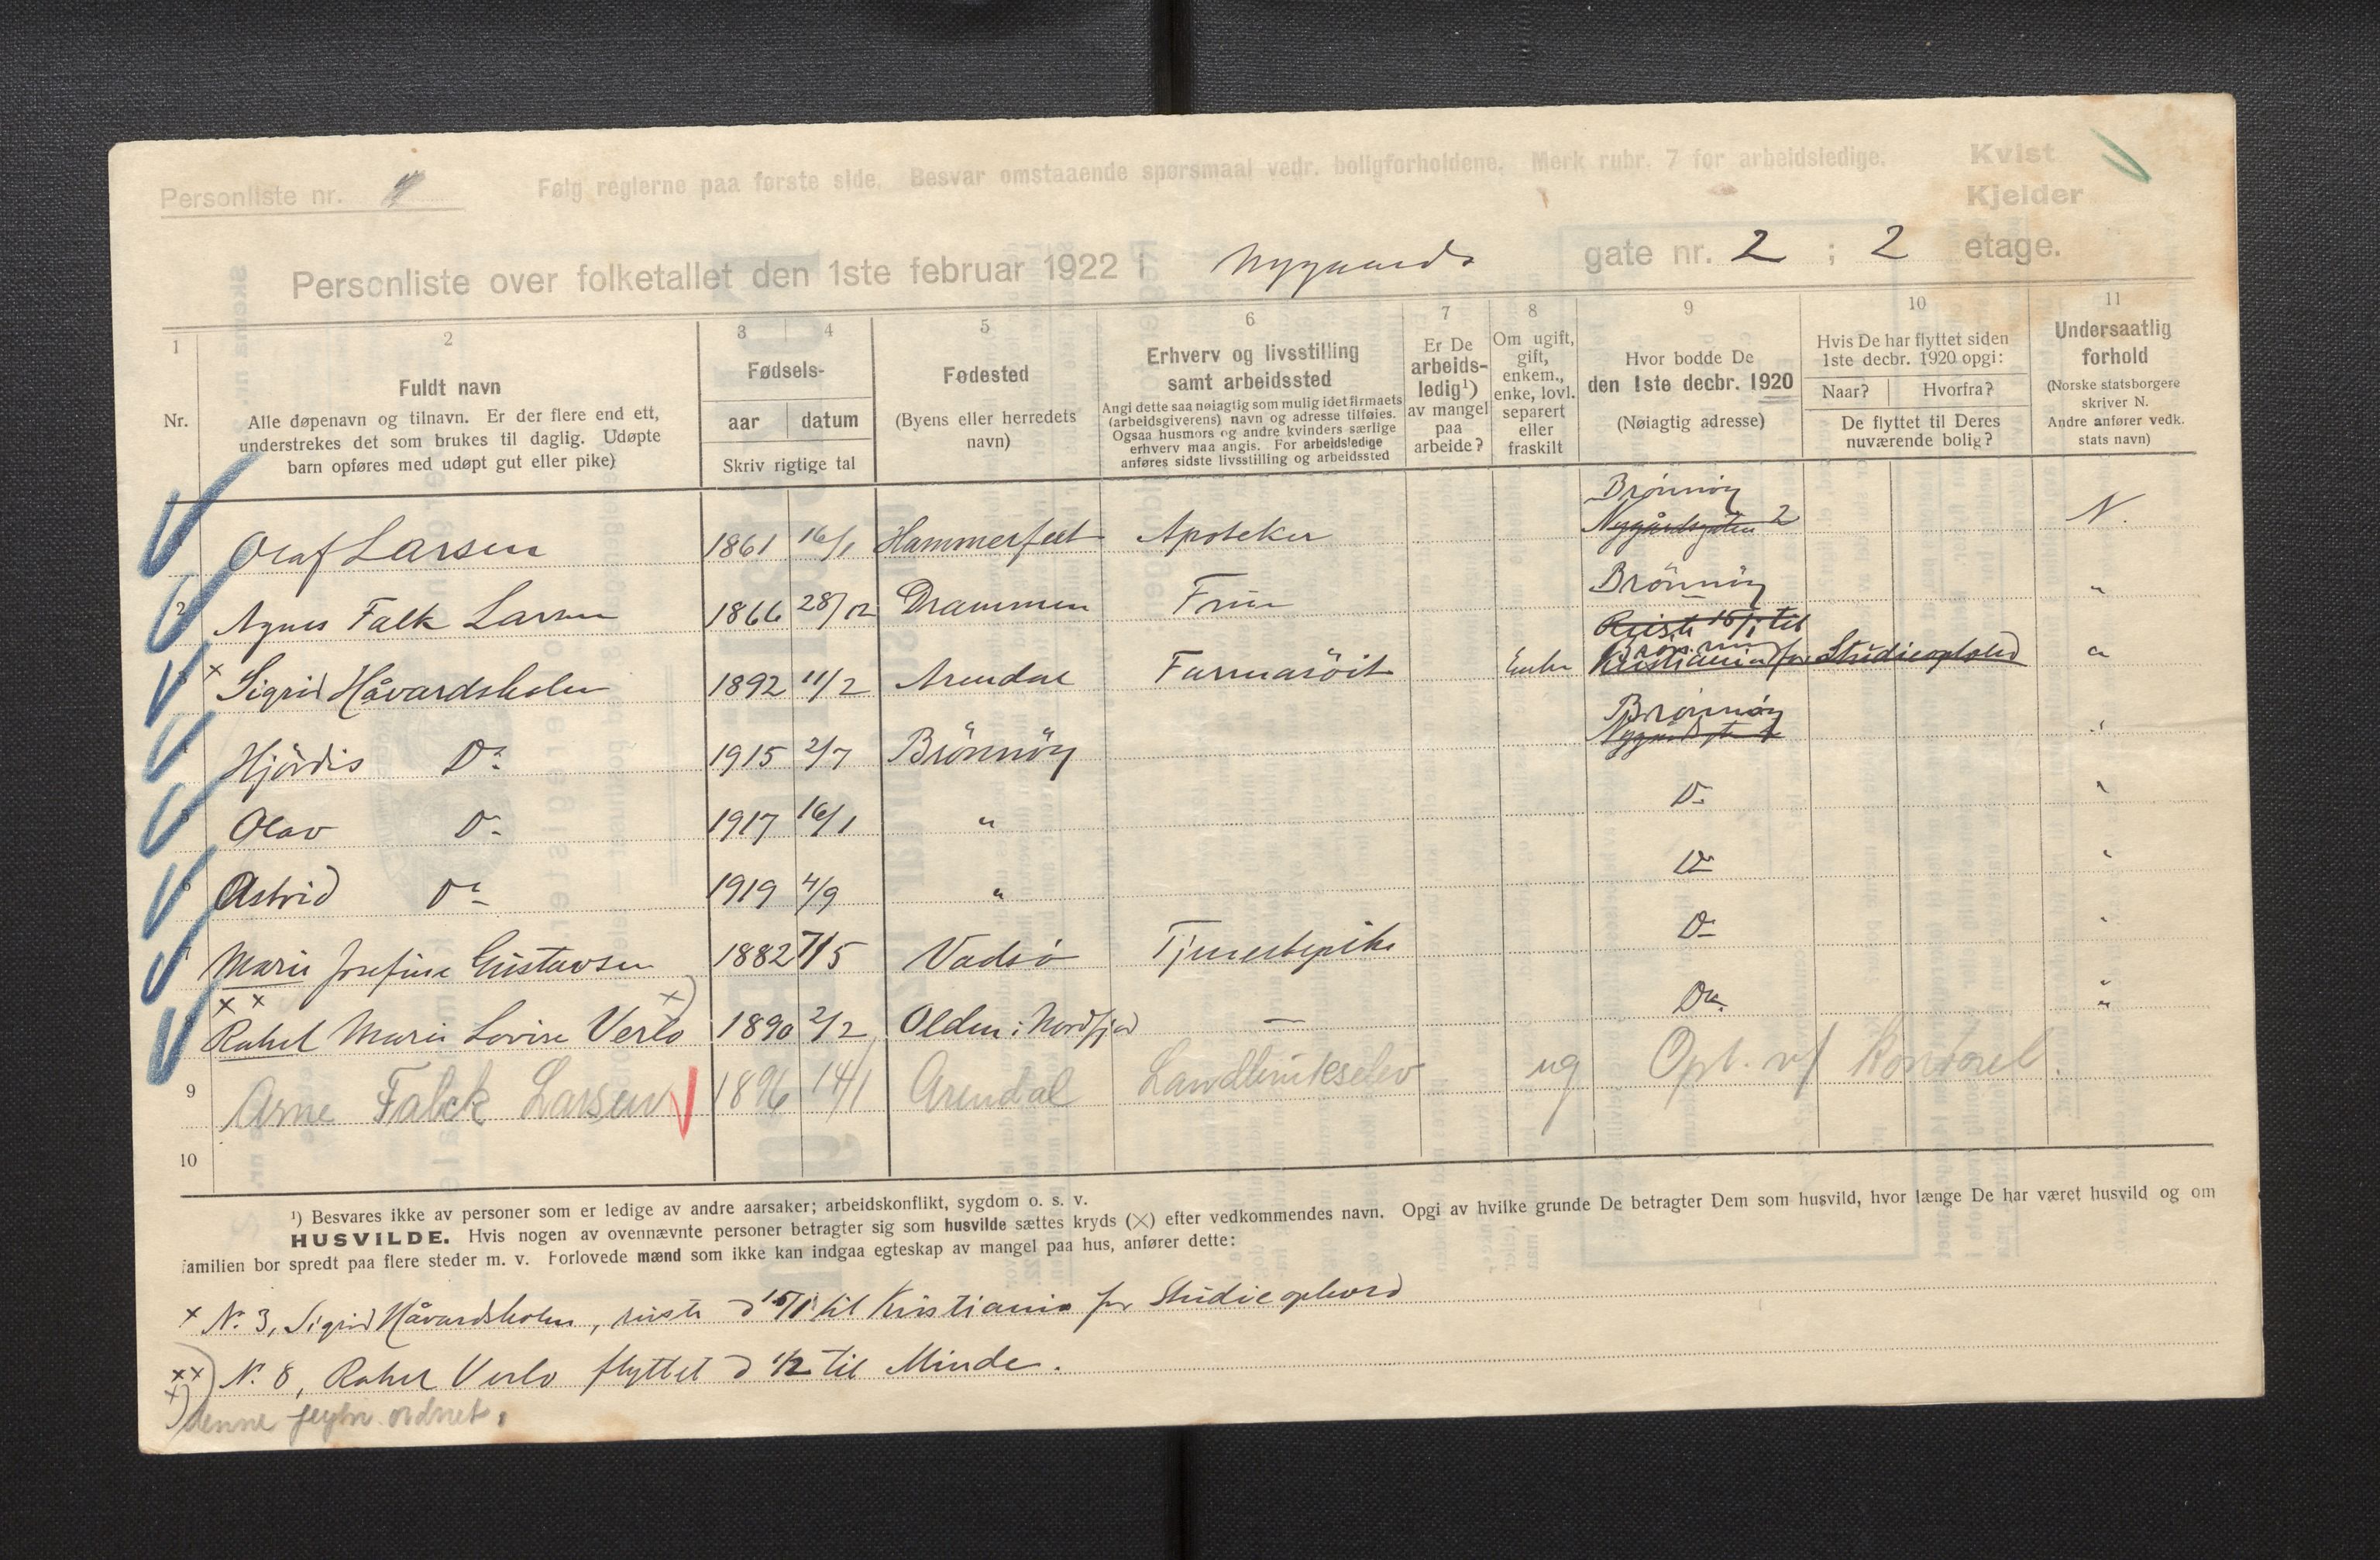 Personliste nr.
Følg reglerne paa første side. Besvar omstaaende spørsmaal vedr. boligforholdene. Merk rubr. 7 for arbeidsledige.
Kvist
Kjelder
Personliste over folketallet den 1ste februar 1922 i Nygaards gate nr. 2 ; 2 etage.
1 2 3 4 5 6 7 8 9 10 11
Nr.
Fuldt navn
Alle døpenavn og tilnavn. Er der flere end ett,
understrekes det som brukes til daglig. Udøpte
barn opføres med udøpt gut eller pike)
Fødsels-
aar datum
Skriv rigtige tal
Fødested
(Byens eller herredets
navn)
Erhverv og livsstilling
samt arbeidssted
Angi dette saa nøiagtig som mulig idet firmaets
(arbeidsgiverens) navn og adresse tilføies.
Ogsaa husmors og andre kvinders særlige
erhverv maa angis. For arbeidsledige
anføres sidste livsstilling og arbeidssted
Er De
arbeids-
ledig¹)
av mangel
paa
arbeide?
Om ugift,
gift,
enkem.,
enke, lovl.
separert
eller
fraskilt
Hvor bodde De
den 1ste decbr. 1920
(Nøiagtig adresse)
Hvis De har flyttet siden
1ste decbr. 1920 opgi:
Naar? Hvorfra?
De flyttet til Deres
nuværende bolig?
Undersaatlig
forhold
(Norske statsborgere
skriver N.
Andre anfører vedk.
stats navn)
Olaf Larsen 1861 16/1 Hammerfest Apoteker Brönnöy Nygårdsgaten 2 N.
2 Agnes Falk Larsen 1866 28/12 Drammen Frue Brönnöy "
× Sigrid Håvardsholm 1892 11/2 Arendal Farmasöit Enke Reiste 15/1 til Kristiania for Studieophold "
Hjördis Do 1915 2/7 Brönnöy Brönnöy "
Olav Do 1917 16/1 " Do "
6 Astrid Do 1919 4/9 " Do "
Marie Josefine Gustavsen 1882 7/5 Vadsö Tjenestepike Do "
×× 8 Rahel Marie Lovise Verlo ×) 1890 2/2 Olden i Nordfjord — Do "
9 Arne Falck Larsen 1896 14/1 Arendal Landbrukselev ug Opl. v/ kontoret.
10
¹) Besvares ikke av personer som er ledige av andre aarsaker; arbeidskonflikt, sygdom o. s. v.
HUSVILDE. Hvis nogen av ovennævnte personer betragter sig som husvilde sættes kryds (×) efter vedkommendes navn. Opgi av hvilke grunde De betragter Dem som husvild, hvor længe De har været husvild og om
familien bor spredt paa flere steder m. v. Forlovede mænd som ikke kan indgaa egteskap av mangel paa hus, anfører dette:
× N. 3, Sigrid Håvardsholm, reiste d 15/1 til Kristiania for Studieophold
××) N. 8, Rahel Verlo flyttet d 1/2 til Minde.
×) denne ordnet.